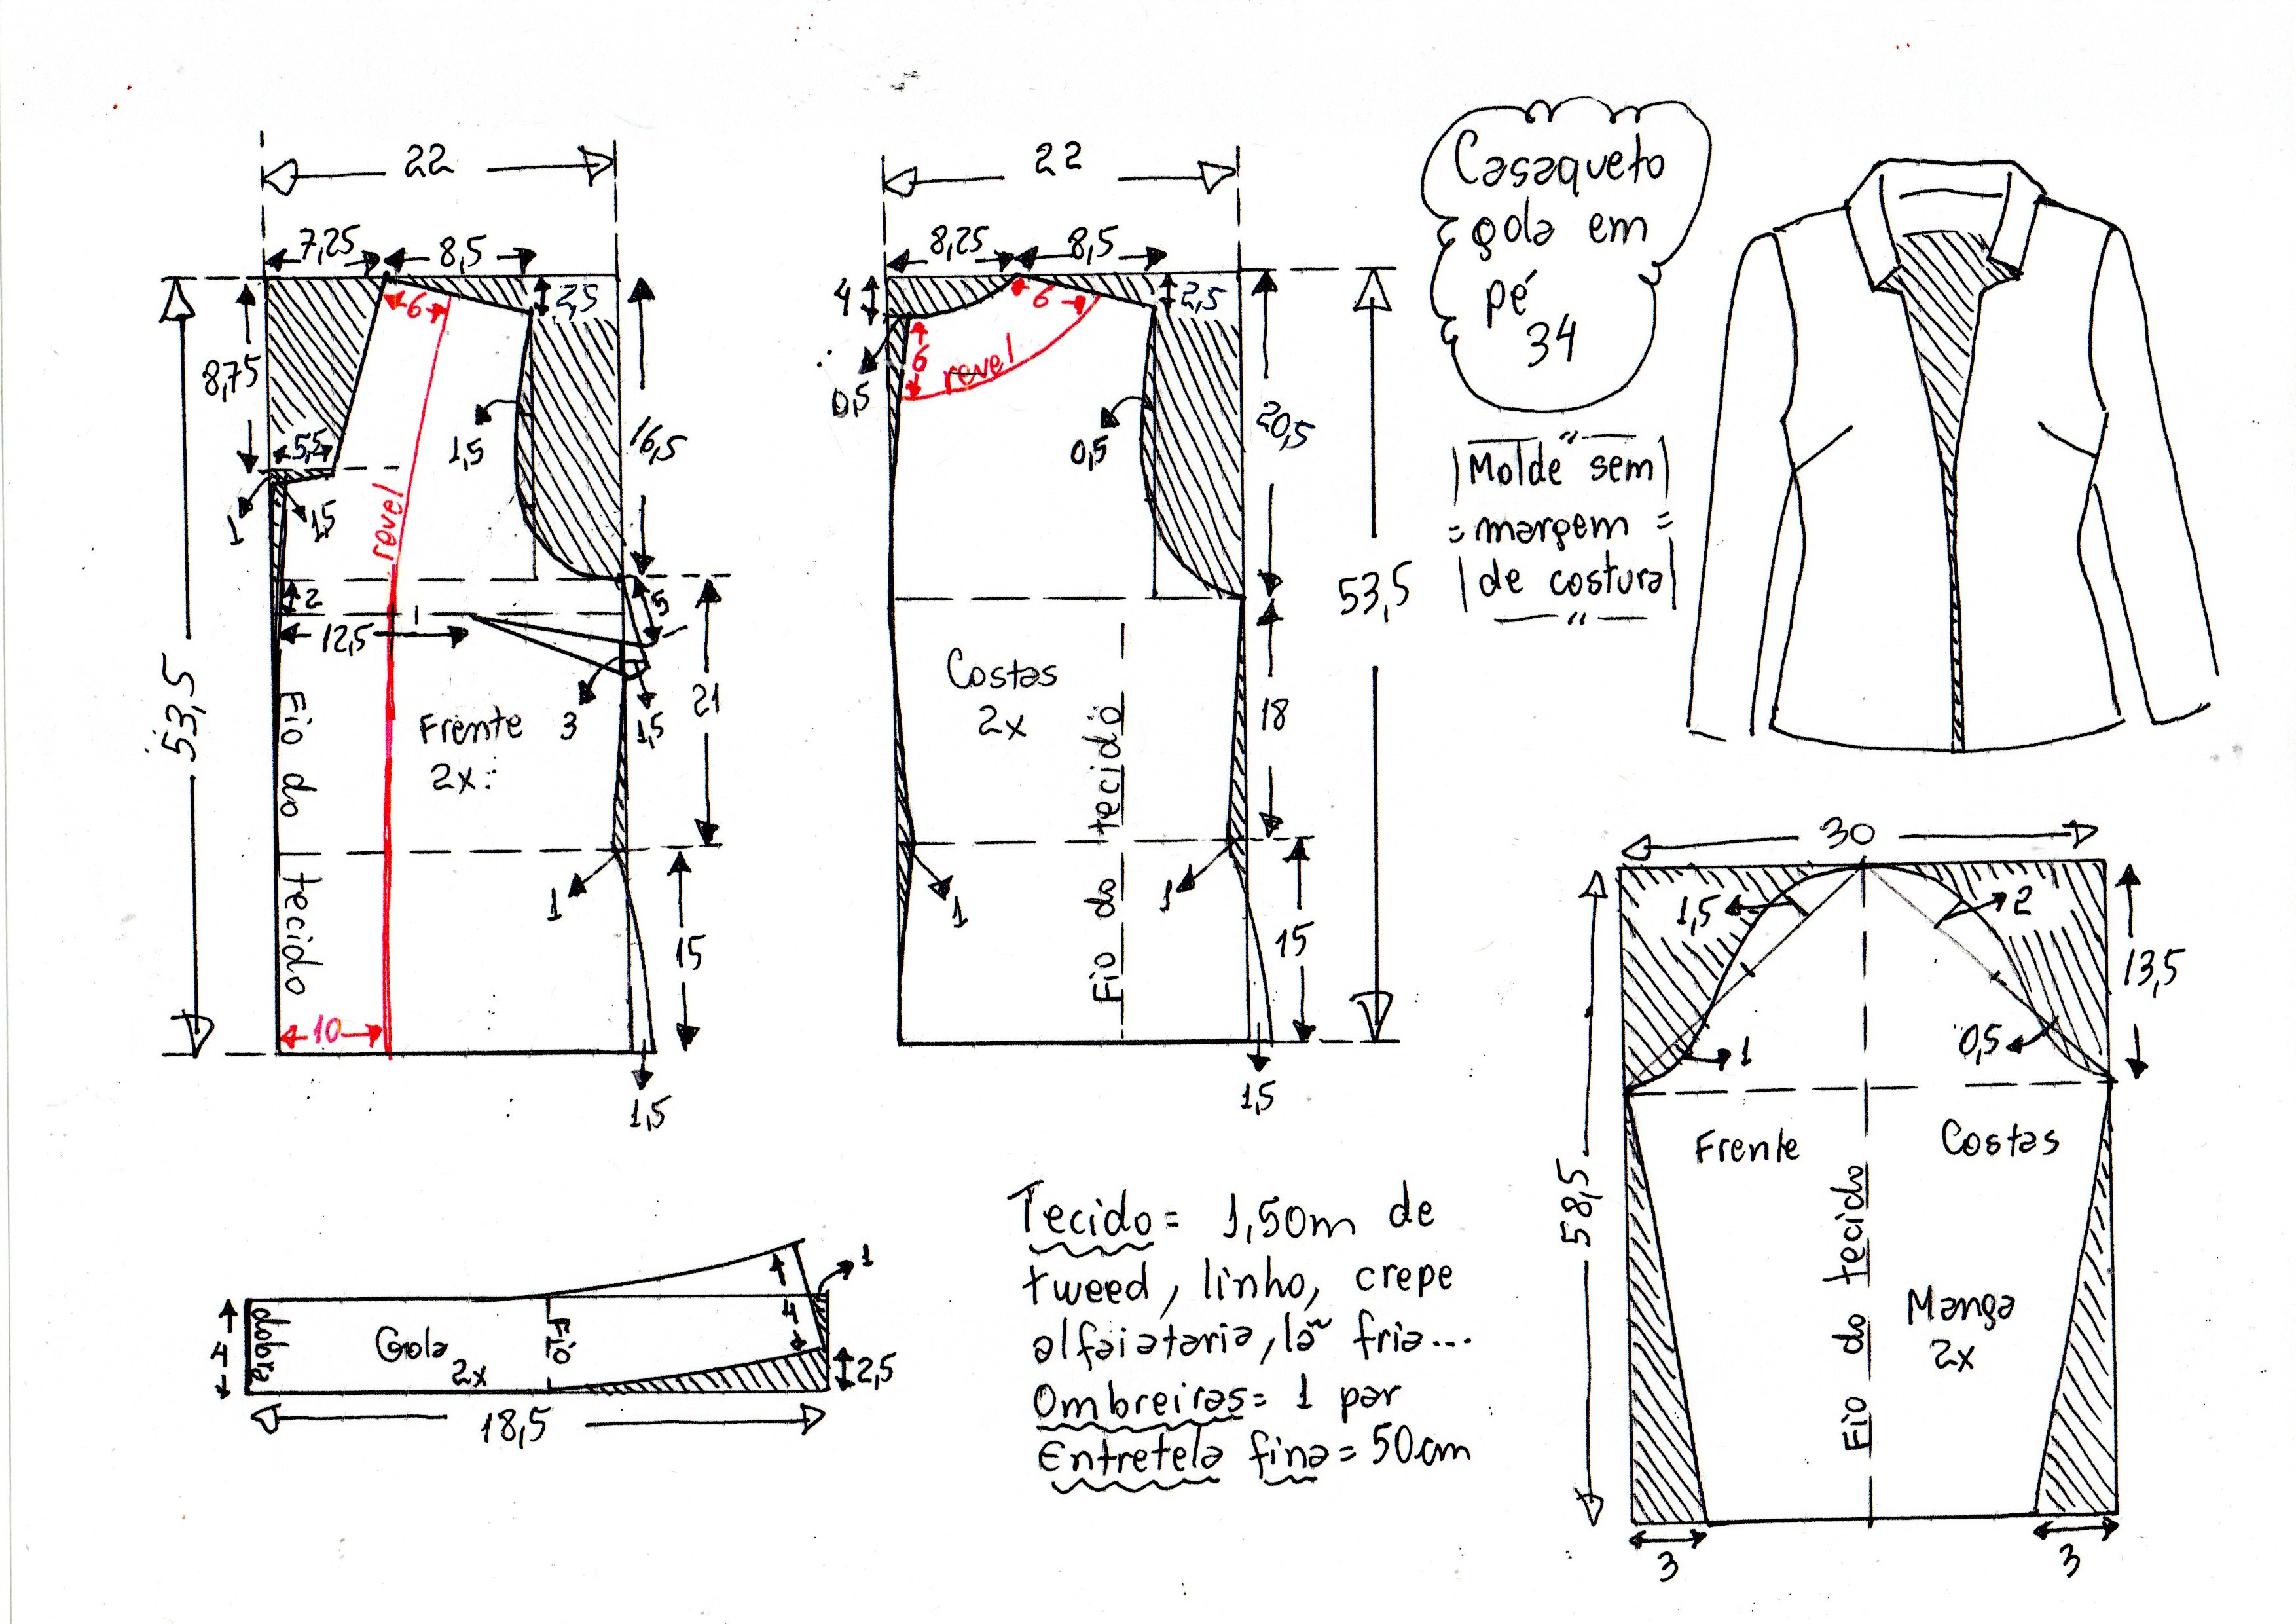 22
7,25
8,5
6
2,5
8,75
5,5
1,5
16,5
1
1,5
revel
53,5
2
5
12,5
Fio do tecido
Frente
2x
3
1,5
21
1
15
10
1,5
22
8,25
8,5
4
6
2,5
6
revel
0,5
0,5
20,5
53,5
Costas
2x
18
Fio do tecido
1
1
15
1,5
Casaqueto
gola em
pé
34
Molde sem
margem
de costura
30
1,5
2
13,5
0,5
1
58,5
Frente
Costas
Fio do tecido
Manga
2x
3
3
1
4
dobra
Gola
2x
Fio
4
2,5
18,5
Tecido = 1,50m de
tweed, linho, crepe
alfaiataria, lã fria...
Ombreiras = 1 par
Entretela fina = 50cm